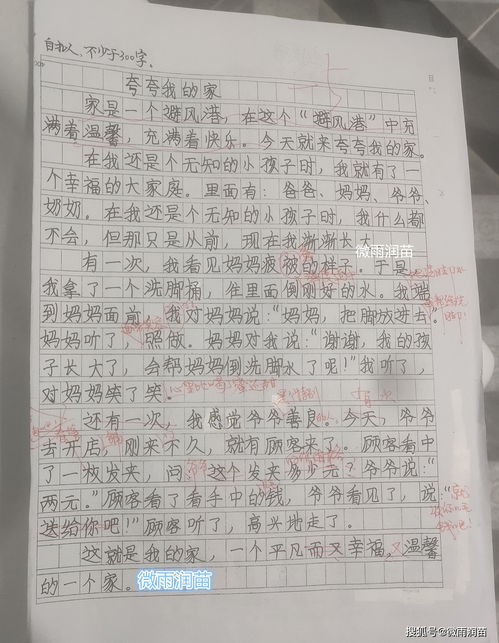 自拟人，不少于300字。
夸夸我的家
家是一个避风港，在这个“避风港”中充
满着温馨，充满着快乐。今天就来夸夸我的家。
在我还是个无知的小孩子时，我就有了一
个幸福的大家庭。里面有：爸爸、妈妈、爷爷、
奶奶。在我还是个无知的小孩子时，我什么都
不会，但那只是从前，现在我渐渐长大
微雨润苗
有一次，我看见妈妈疲被的样子。于是
我拿了一个洗脚捅，往里面倒刚好的水。我端
到妈妈面前，我对妈妈说：“妈妈，把脚放进去。”
妈妈听了，照做。妈妈对我说：“谢谢，我的孩
子长大了，会帮妈妈倒洗脚水了呢！”我听了，
对妈妈笑了笑。
还有一次，我感觉爷爷善良。今天，爷爷
有一次
去开店，刚来不久，就有顾客来了。顾客看中
了一枚发夹，问 这个发来易少元？爷爷说：“
两元。”顾客看了看手中的钱，爷爷看见了，说：“
送给你吧！”顾客听了，高兴地走了。
这就是我的家，一个平凡而又幸福，又温馨
的一个家。
微雨润苗
搜狐号@微雨润苗